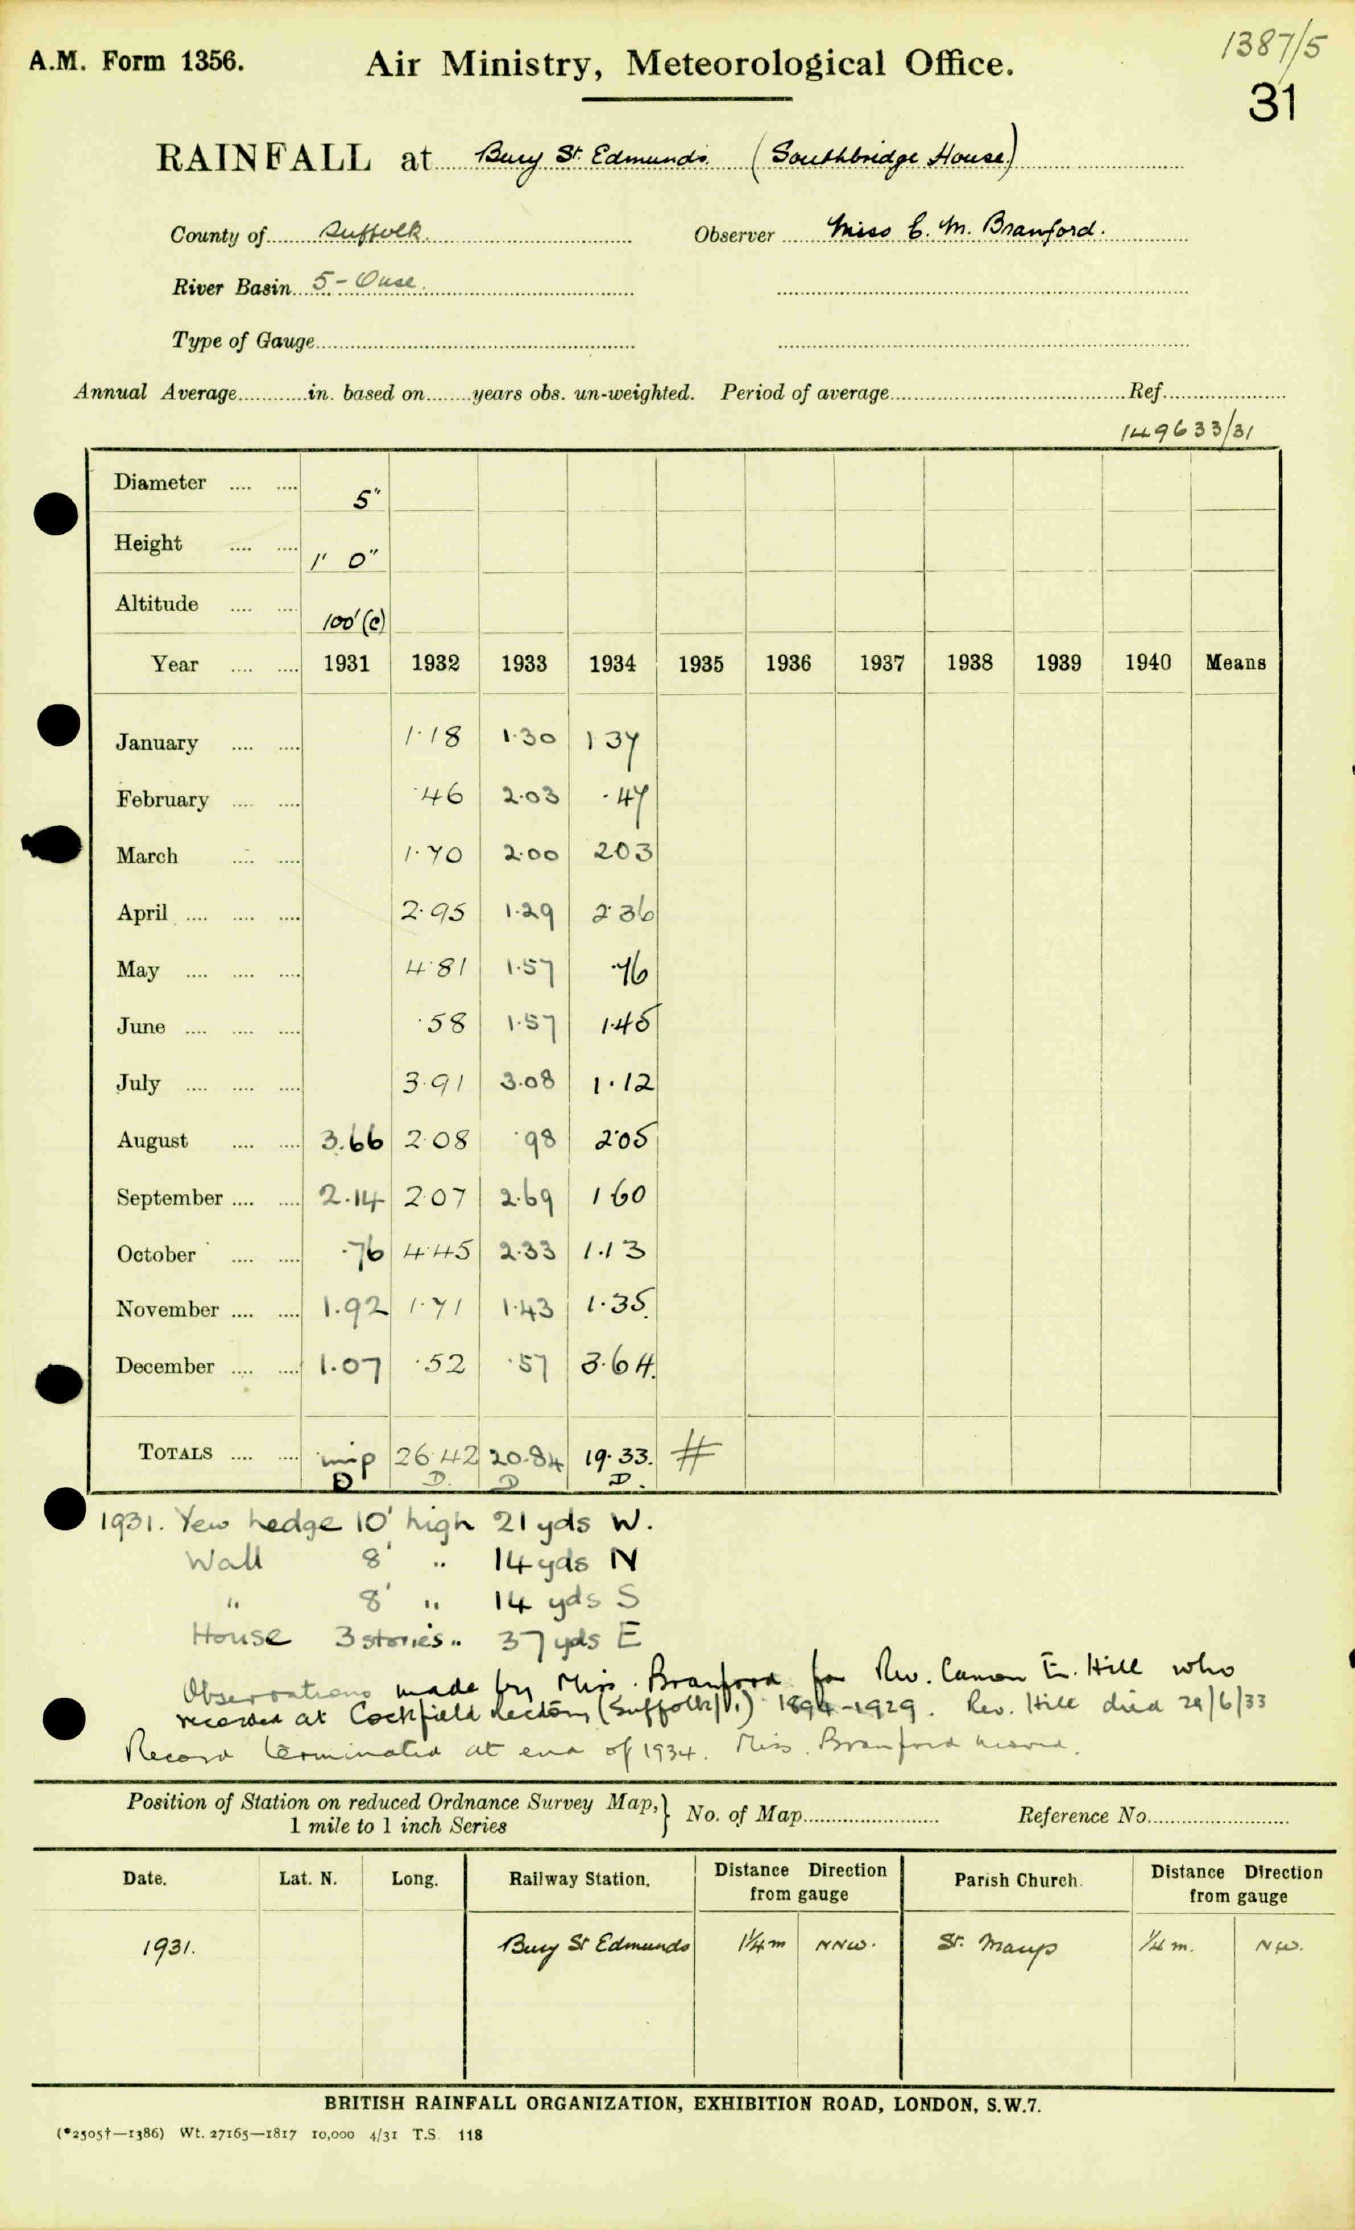 1387/5
A.M. Form 1356. Air Ministry, Meteorological Office.
31
RAINFALL at Bury St. Edmunds. (Southbridge House)
County of Suffolk. Observer Miss E. M. Branford.
River Basin 5 - Ouse.
Type of Gauge
Annual Average in. based on years obs. un-weighted. Period of average Ref.
149633/31
Diameter 5"
Height 1' 0"
Altitude 100'(c)
Year 1931 1932 1933 1934 1935 1936 1937 1938 1939 1940 Means
January 1.18 1.30 1 37
February .46 2.03 .47
March 1.70 2.00 2 03
April 2.95 1.29 2.36
May 4.81 1.57 .76
June .58 1.57 1.45
July 3.91 3.08 1.12
August 3.66 2.08 .98 2.05
September 2.14 2.07 2.69 1 60
October .76 4.45 2.33 1.13
November 1.92 1.71 1.43 1.35
December 1.07 .52 .57 3.64
TOTALS 26.42 20.84 19.33. #
D D. D D.
1931. Yew hedge 10' high 21 yds W.
Wall 8' " 14 yds N
" 8' " 14 yds S
House 3 stories " 37 yds E
Observations made by Miss. Branford for Rev. Canon E. Hill who
recorded at Cockfield Rectory (Suffolk) 1894-1929. Rev. Hill died 29/6/33
Record terminated at end of 1934. Miss. Branford moved.
Position of Station on reduced Ordnance Survey Map, } No. of Map Reference No.
1 mile to 1 inch Series
Date. Lat. N. Long. Railway Station. Distance Direction from gauge Parish Church. Distance Direction from gauge
1931. Bury St Edmunds 1¼ m NNW. St. Marys ¼ m. NW.
BRITISH RAINFALL ORGANIZATION, EXHIBITION ROAD, LONDON, S.W.7.
(*2505†—1386) Wt. 27165—1817 10,000 4/31 T.S. 118